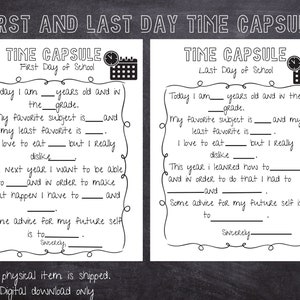 FIRST AND LAST DAY TIME CAPSUL
TIME CAPSULE
First Day of School
oday I am ___ years old and in
the ___ grade.
My favorite subject is ___ and
my least favorite is ___.
I love to eat ___ but I really
dislike ___.
next year I want to be able
to ___ and in order to make
at happen I have to ___ and
___.
ome advice for my future self
is to ___.
Sincerely, ___
TIME CAPSULE
Last Day of School
Today I am ___ years old and in
the ___ grade.
My favorite subject is ___ and my
least favorite is ___.
I love to eat ___ but I really
dislike ___.
This year I learned how to ___
and in order to do that I had to
___ and ___.
Some advice for my future self is
to ___.
Sincerely ___
physical item is shipped.
Digital download only